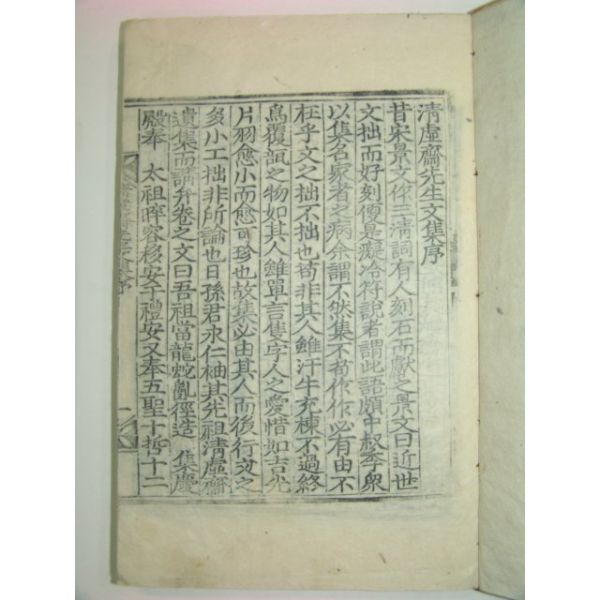 清虛齋先生文集序
昔宋景文作三淸詞有人刻石而獻之景文曰近世
文拙而好刻傻是癡冷符說者謂此語頗中叔季衆
以集名家者之病余謂不然集不苟作作必有由不
在乎文之拙不拙也苟非其人雖汗牛充棟不過終
爲覆瓿之物如其人雖單言隻字人之愛惜如吉光
片羽愈小而愈可珍也故集必由其人而後行文之
多小工拙非所論也日孫君永仁袖其先祖淸虛齋
遺集而請弁卷之文曰吾祖當龍蛇亂徑造 集慶
殿奉 太祖晬容移安于禮安又奉五聖十哲十二